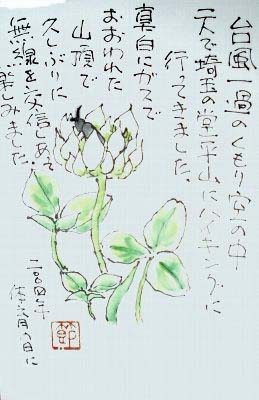 台風一過のくもり空の中
二人で埼玉の堂平山にハイキングに
行ってきました。
真白にガスで
おおわれた
山頂で
久しぶりに
無線を交信しあって
楽しみました。
二〇〇四年
体育の日に
節